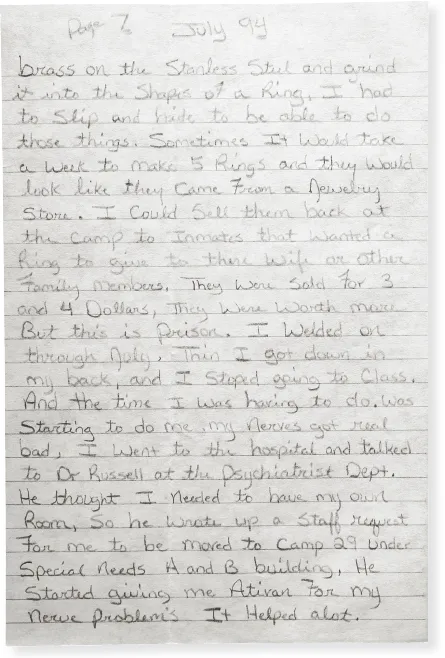 Page 7 July 94
brass on the Stanless Steel and grind
it into the Shapes of a Ring, I had
to Slip and hide to be able to do
those things. Sometimes It Would take
a Week to make 5 Rings and they Would
look like they Came From a Jewelry
Store. I Could Sell them back at
the Camp to Inmates that Wanted a
Ring to give to there Wife or other
Family Members. They Were Sold For 3
and 4 Dollars, They Were Worth more
But this is Prison. I Welded on
through July, Thin I got down in
my back, and I Stoped going to Class.
And the time I was having to do. Was
Starting to do me. my Nerves got real
bad, I Went to the hospital and talked
to Dr Russell at the Psychiatrist Dept.
He thought I Needed to have my own
Room, So he Wrote up a Staff request
For me to be moved to Camp 29 Under
Special Needs A and B building, He
Started giving me Ativan For my
Nerve Problem's It Helped alot.